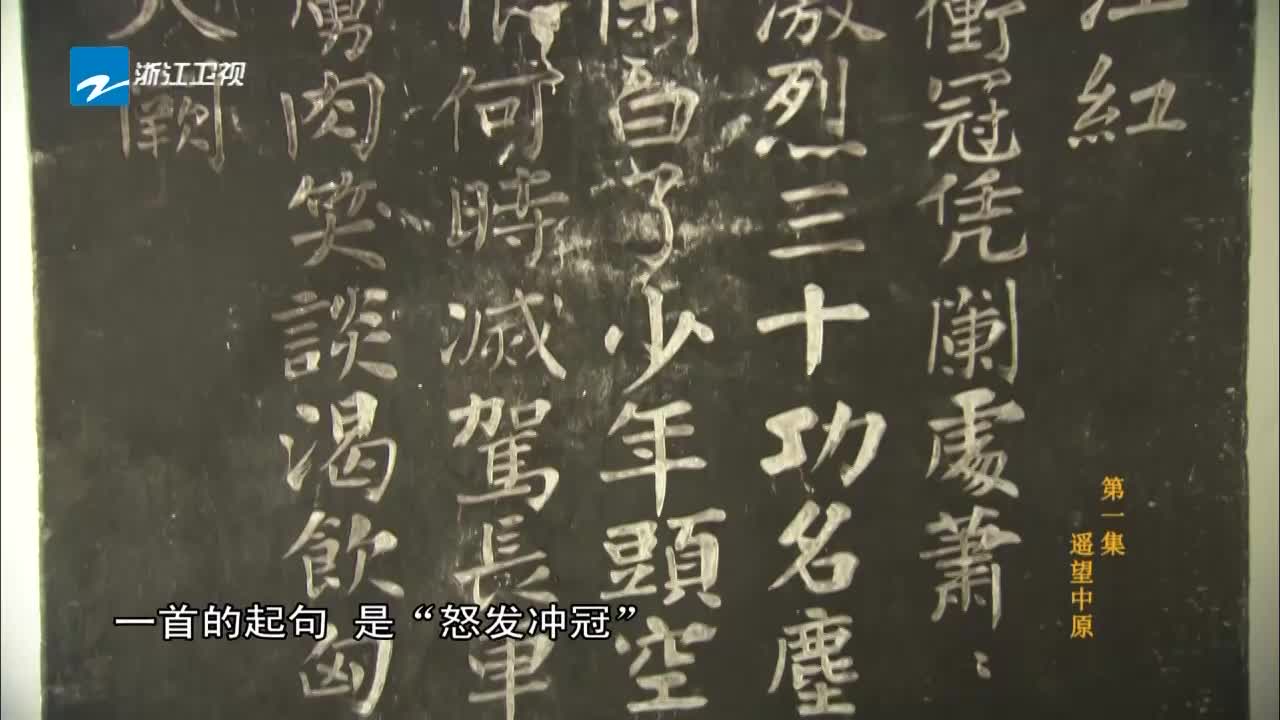 浙江卫视
江紅
衝冠凭闌處蕭〻
激烈三十功名塵
閑白了少年頭空
恨何時滅駕長車
虜肉笑談渴飲匈
天闕
第一集
遥望中原
一首的起句 是“怒发冲冠”